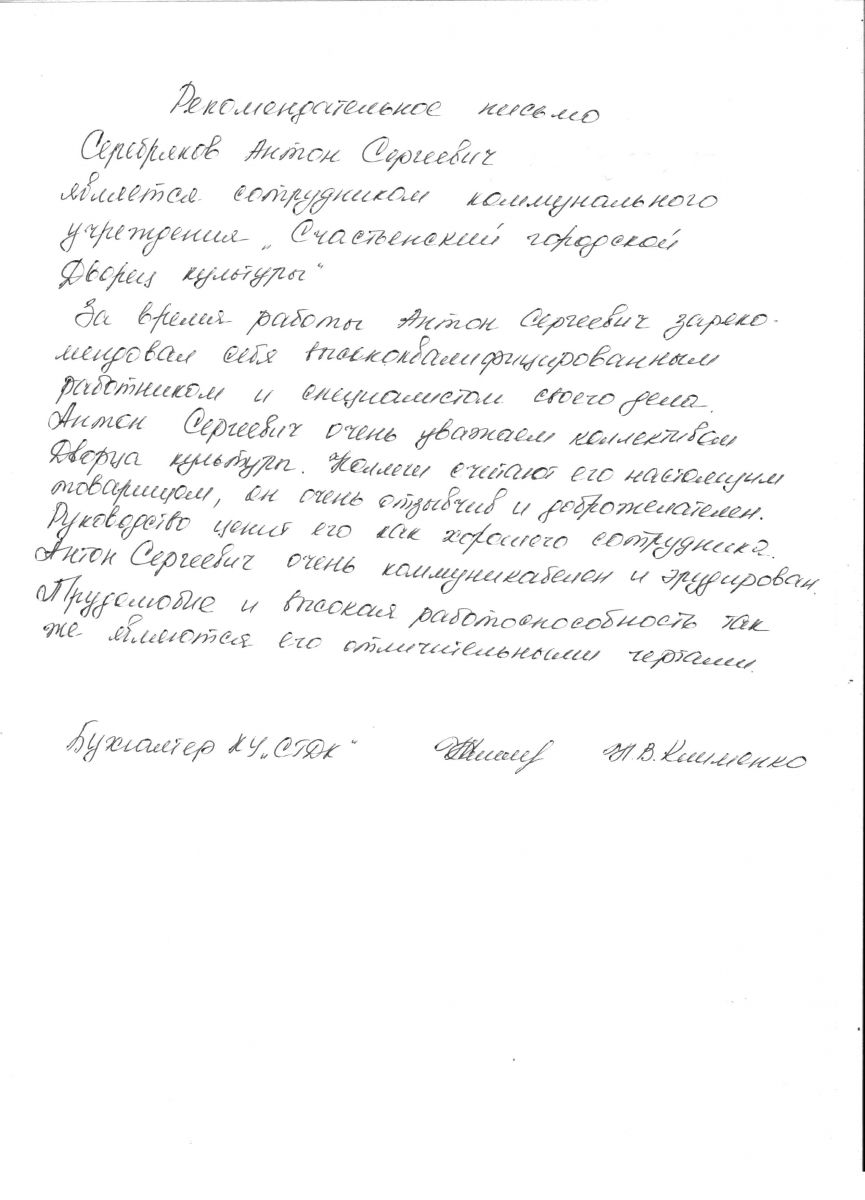 Рекомендательное письмо
Серебряков Антон Сергеевич
является сотрудником коммунального
учреждения „Счастьенский городской
Дворец культуры“
За время работы Антон Сергеевич зареко-
мендовал себя высококвалифицированным
работником и специалистом своего дела.
Антон Сергеевич очень уважаем коллективом
Дворца культуры. Коллеги считают его настоящим
товарищом, он очень отзывчив и доброжелателен.
Руководство ценит его как хорошего сотрудника.
Антон Сергеевич очень коммуникабелен и эрудирован.
Трудолюбие и высокая работоспособность так
же являются его отличительными чертами.
Бухгалтер КУ„СГДК“ Н.В.Клименко